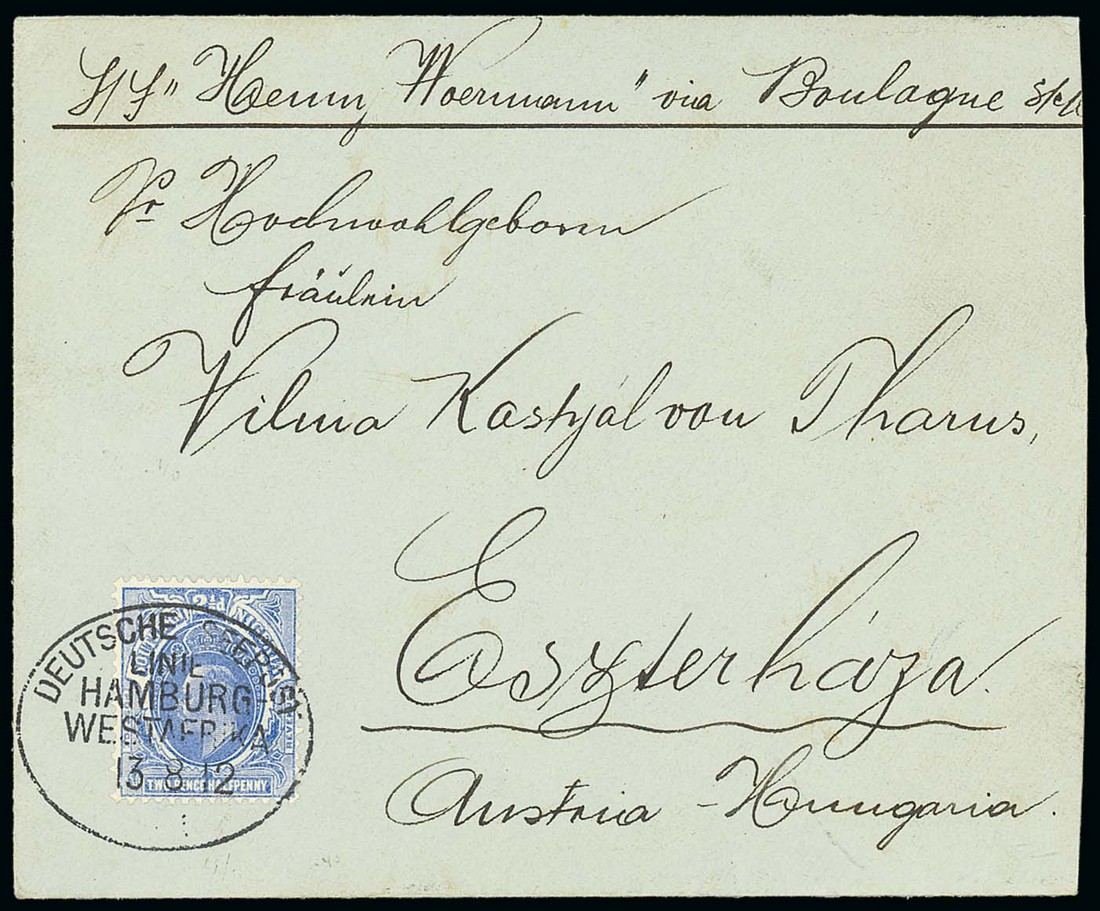 S/S "Henny Woermann" via Boulagne s/M
Pr Hochwohlgeboren
Fräulein
Vilma Kastjál von Tharus,
Eszterháza.
Austria - Hungaria.
2½d
DEUTSCHE SEEPOST
LINIE
HAMBURG
WESTAFRIKA
13 8 12
TWO PENCE HALFPENNY